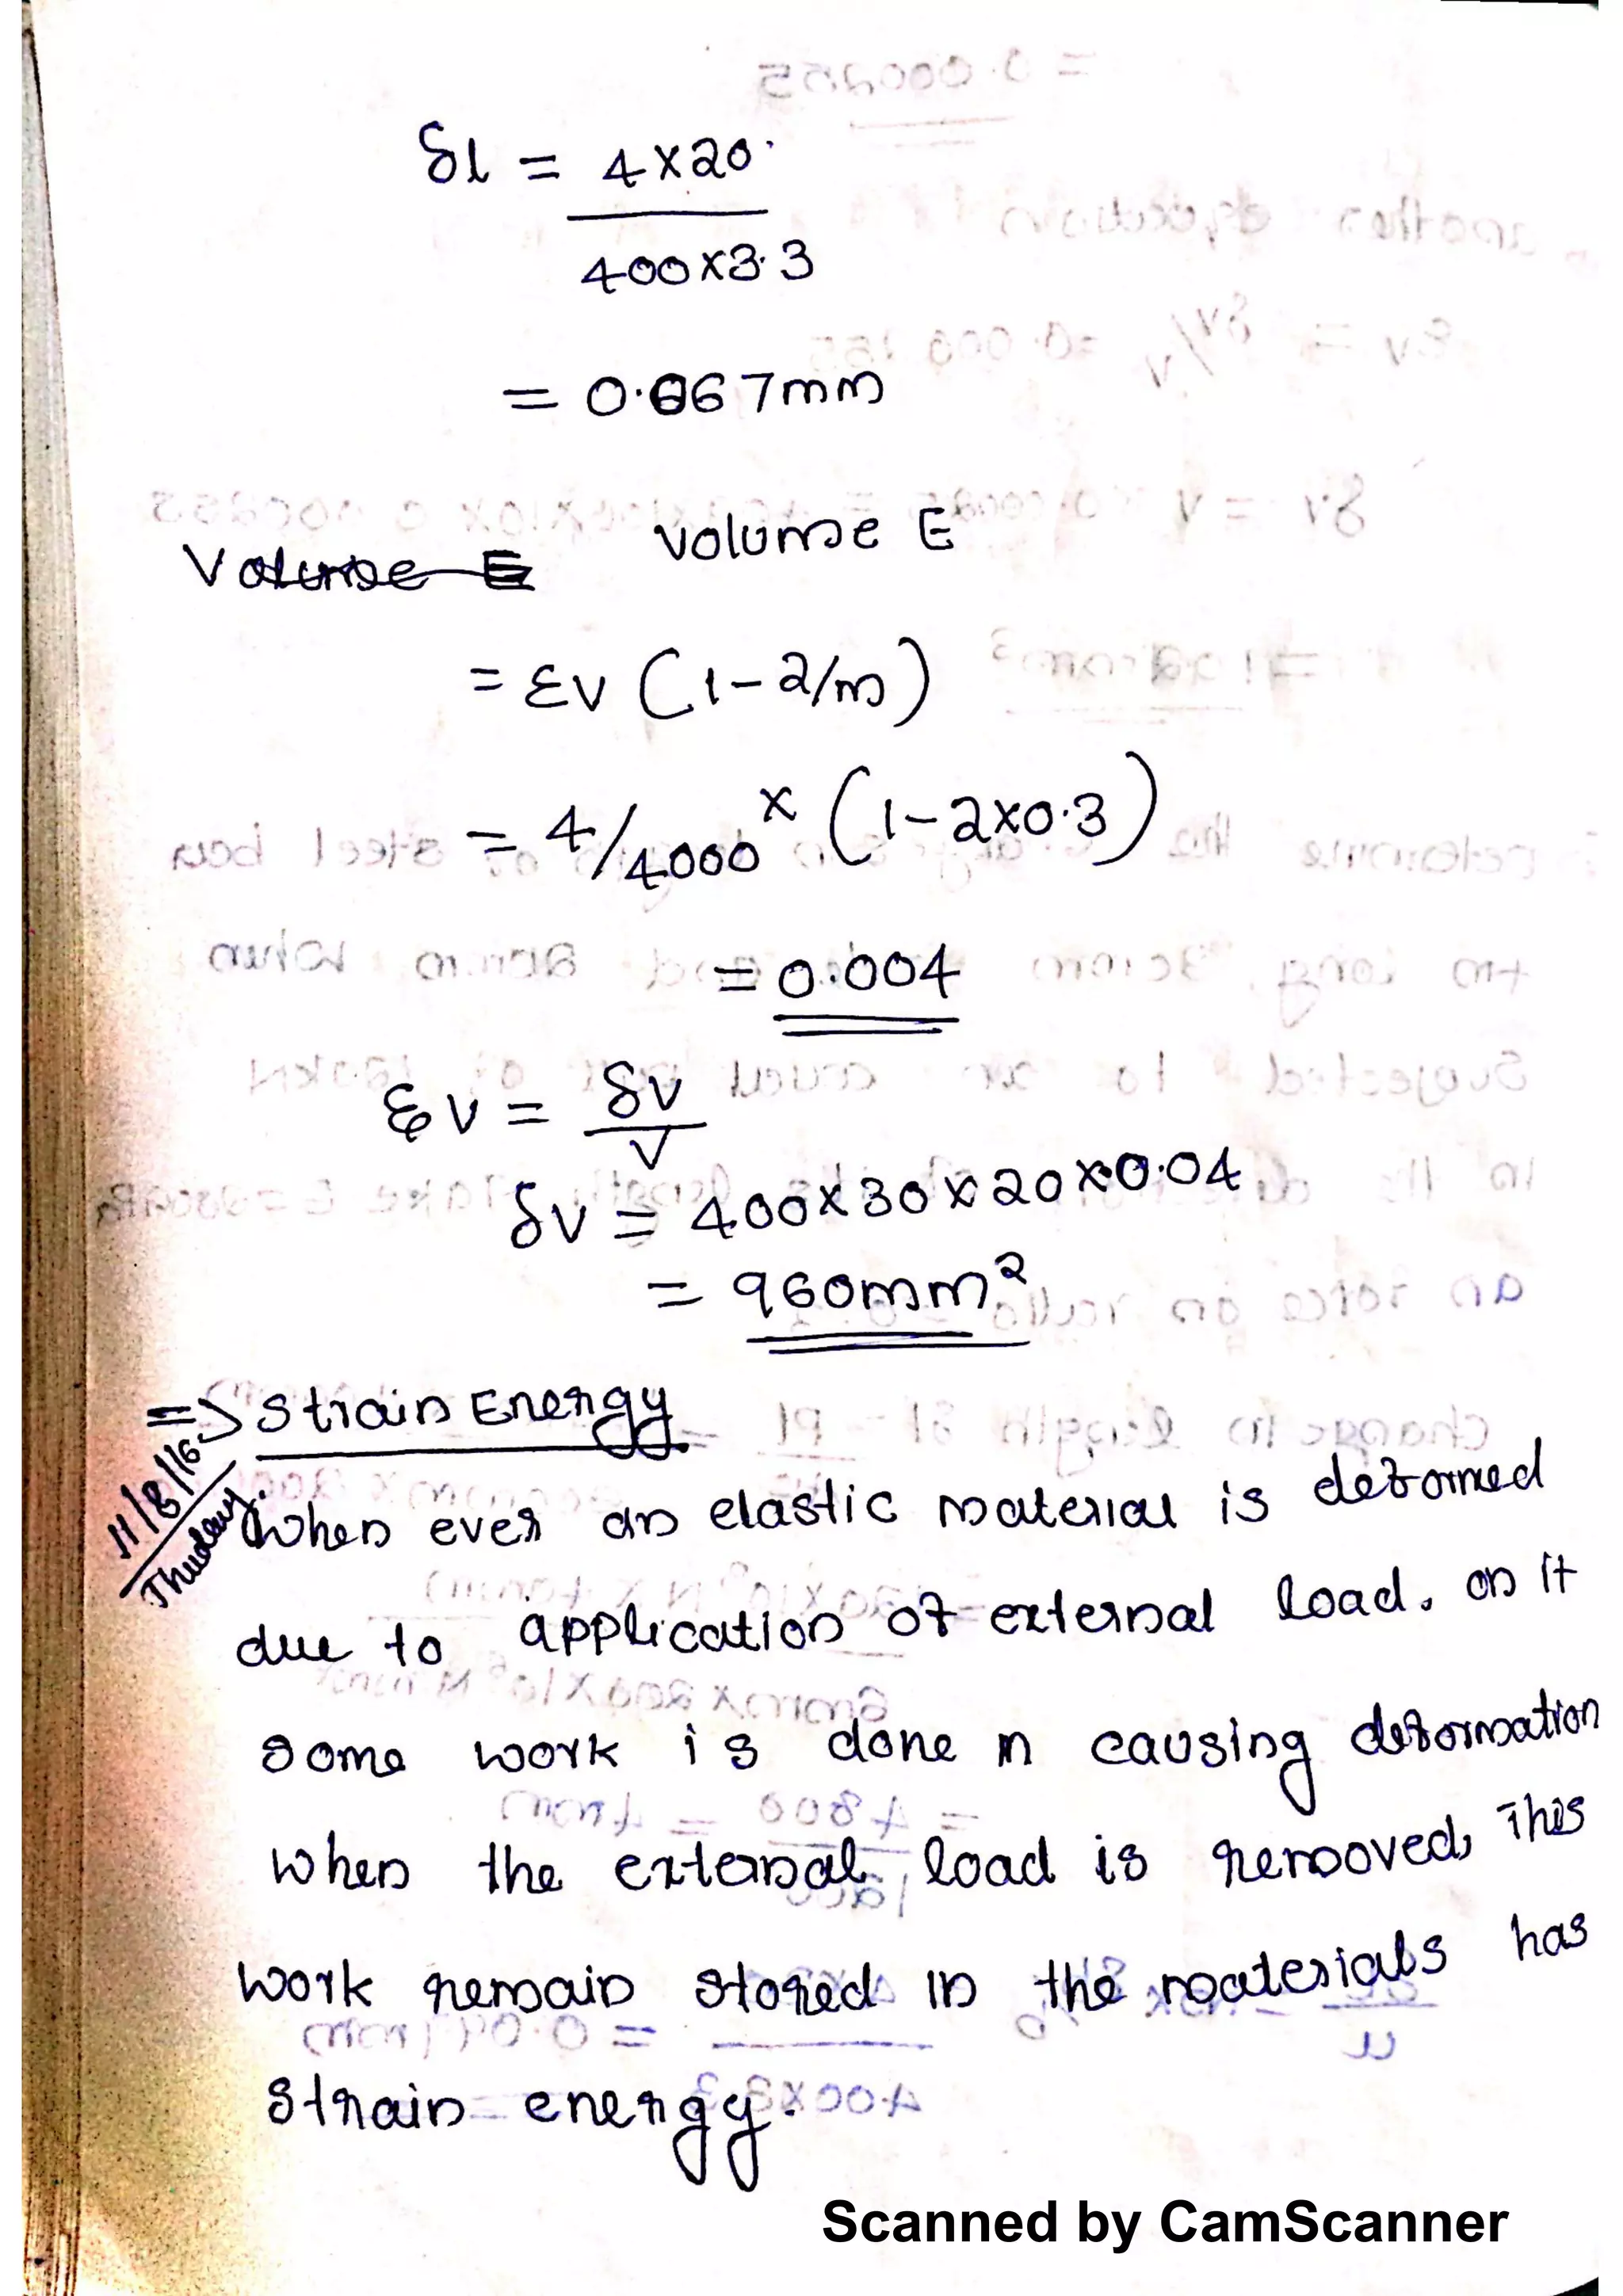 δl = 4×20
400×3.3
= 0.067mm
Volume E
Volume E
= εv (1-2/m)
= 4/4000 × (1-2×0.3)
= 0.004
εv = δv
V
δv = 400×30×20×0.04
= 960mm²
=> Strain Energy.
11/8/16
When ever an elastic material is deformed
due to application of external load. on it
some work is done in causing deformation
when the external load is removed, This
work remain stored in the materials has
strain energy.
Scanned by CamScanner